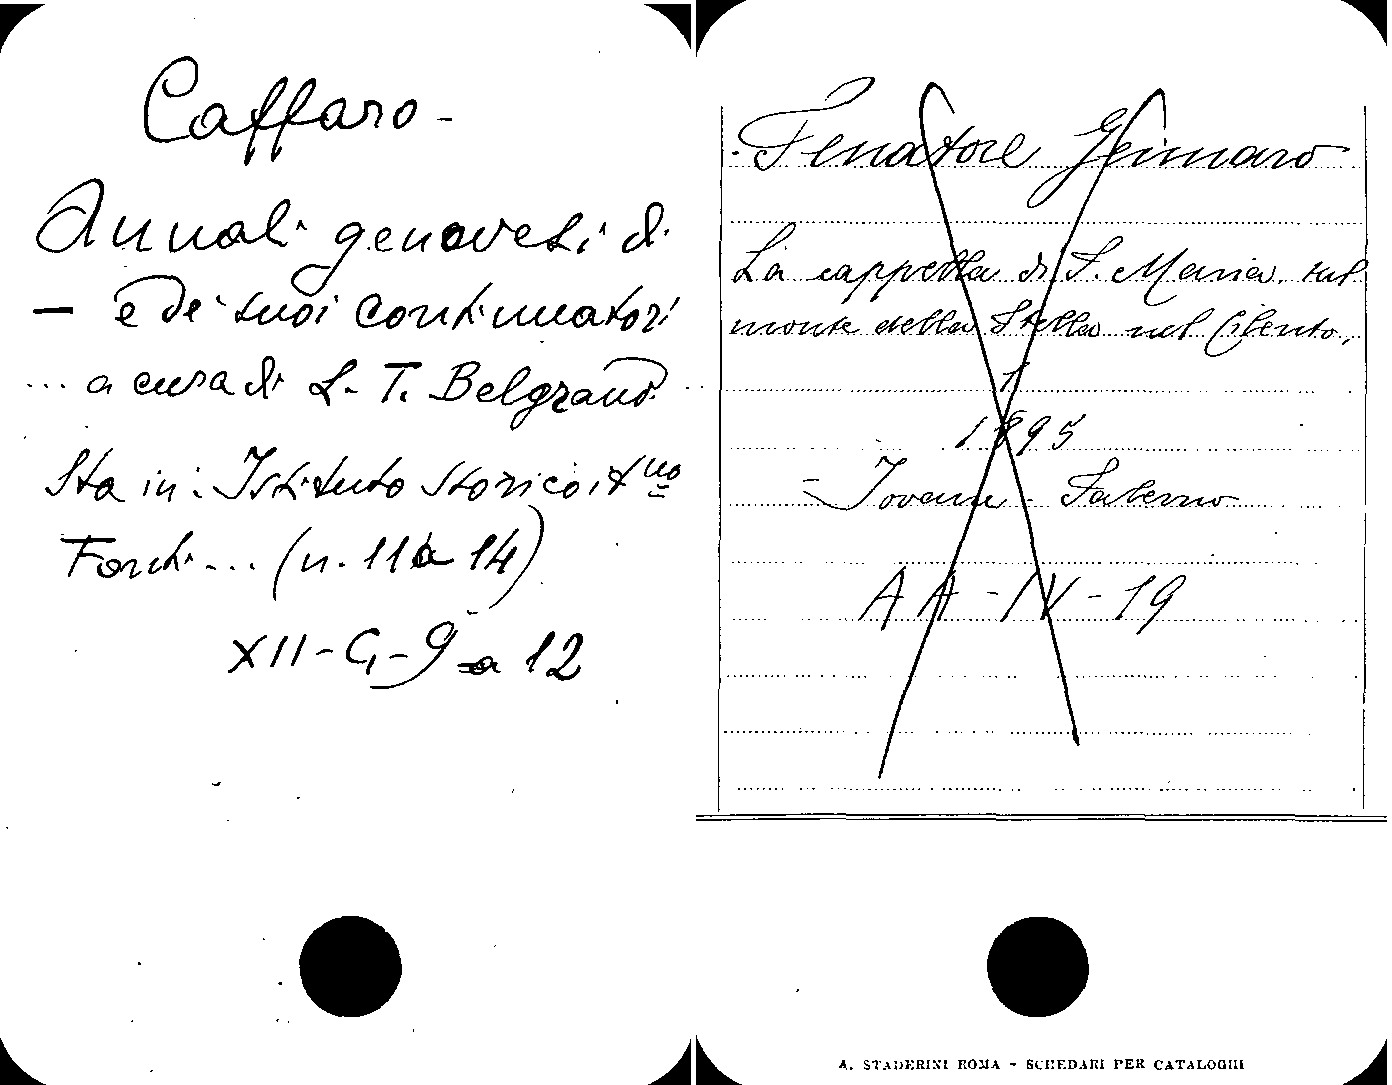 Caffaro -
Annali genovesi di
— e de' suoi continuatori
... a cura di L. T. Belgrano
Sta in: Istituto storico it.no
Fonti ... (n. 11 a 14)
XII - G - 9 a 12
Fenatore Gennaro
La cappella di S. Maria sul
monte della Stella nel Cilento,
1895
= Jovane - Salerno
AA - IV - 19
A. STADERINI ROMA - SCHEDARI PER CATALOGHI